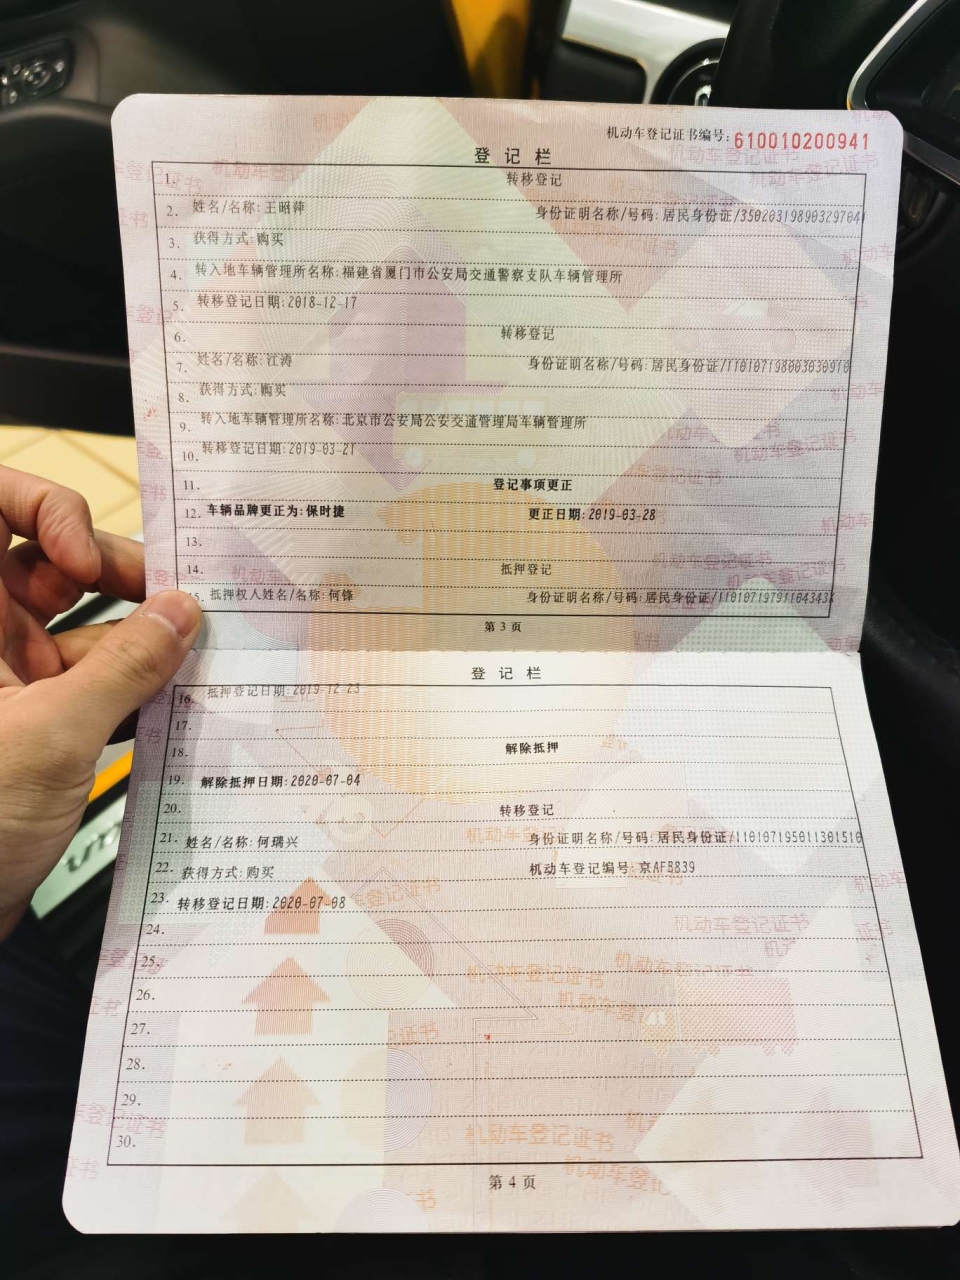 机动车登记证书编号：610010200941
登记栏
1. 转移登记
2. 姓名/名称：王昭萍 身份证明名称/号码：居民身份证/35020319890329704
3. 获得方式：购买
4. 转入地车辆管理所名称：福建省厦门市公安局交通警察支队车辆管理所
5. 转移登记日期：2018-12-17
6. 转移登记
7. 姓名/名称：江涛 身份证明名称/号码：居民身份证/11010719800303091
8. 获得方式：购买
9. 转入地车辆管理所名称：北京市公安局公安交通管理局车辆管理所
10. 转移登记日期：2019-03-21
11. 登记事项更正
12. 车辆品牌更正为：保时捷 更正日期：2019-03-28
13.
14. 抵押登记
15. 抵押权人姓名/名称：何锋 身份证明名称/号码：居民身份证/11010719791104343
第 3 页
登记栏
16. 抵押登记日期：2019-12-23
17.
18. 解除抵押
19. 解除抵押日期：2020-07-04
20. 转移登记
21. 姓名/名称：何瑞兴 身份证明名称/号码：居民身份证/11010719501130151
22. 获得方式：购买 机动车登记编号：京AFB839
23. 转移登记日期：2020-07-08
24.
25.
26.
27.
28.
29.
30.
第 4 页